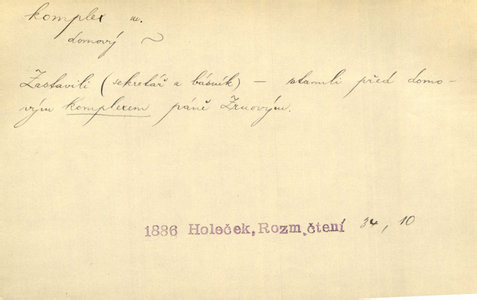 komplex m.
domový ~
Zastavili (sekretář a básník) – stanuli před domo-
vým komplexem páně Žrnovým.
1886 Holeček, Rozm. čtení 34, 10